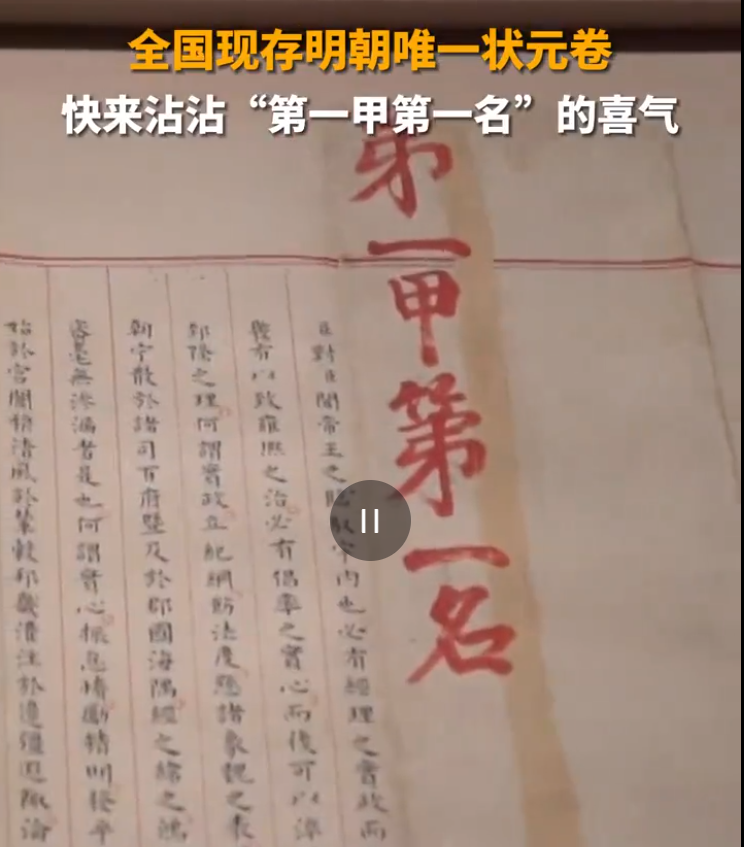 全国现存明朝唯一状元卷
快来沾沾“第一甲第一名”的喜气
第一甲第一名
臣對臣聞帝王之宇内也必有經理之實政而
機有以致雍熙之治必有倡率之實心而後可以淬
郅隆之理何謂實政立紀綱飭法度懸諸象魏之表
朝宁散於諸司百府暨及於郡國海隅經之緯之鴻
密毫無滲漏者是也何謂實心振怠惰勵精明發乎
始於宮闈穆清風於輦轂邦畿灌注於邊疆遐陬淪